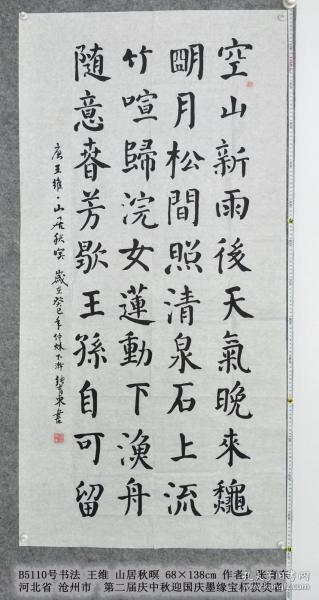 空山新雨後天氣晚來龝
朙月松間照清泉石上流
竹喧歸浣女蓮動下漁舟
随意萅芳歇王孫自可留
唐王維·山居秋暝 歲在癸巳年仲秋下浣
B5110号书法 王维 山居秋暝 68×138cm 作者：张
河北省 沧州市 第二届庆中秋迎国庆墨缘宝